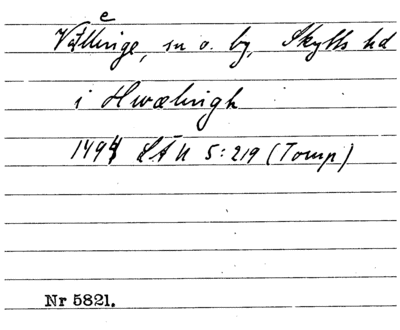 Vellinge, sn o. by, Skytts hd
i Hwælingh
1494 LÄU 5:219 (Tomp)
Nr 5821.